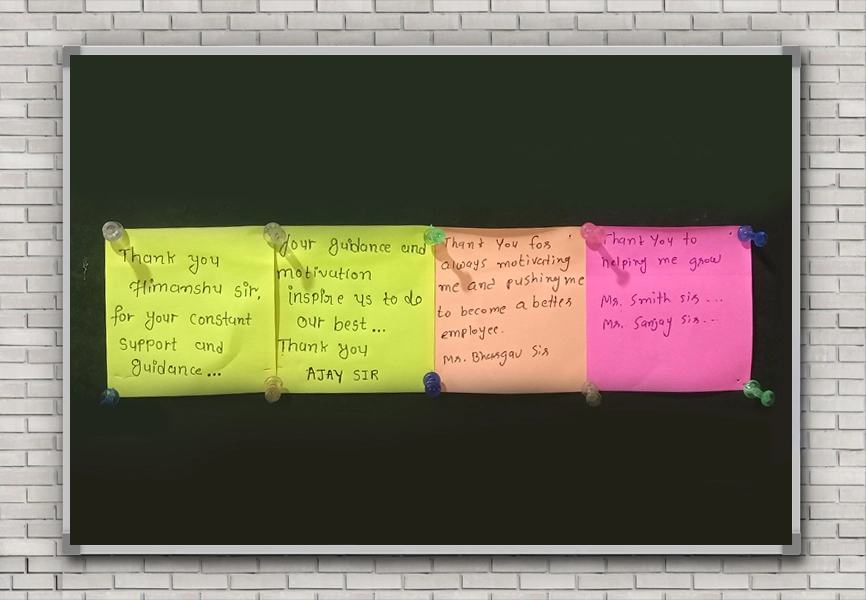 Thank you
Himanshu sir,
for your constant
support and
guidance...
Your guidance and
motivation
inspire us to do
our best...
Thank you
AJAY SIR
Thank You for
always motivating
me and pushing me
to become a better
employee.
Mr. Bhargav Sir
Thank You to
helping me grow
Mr. Smith sir...
Mr. Sanjay Sir...